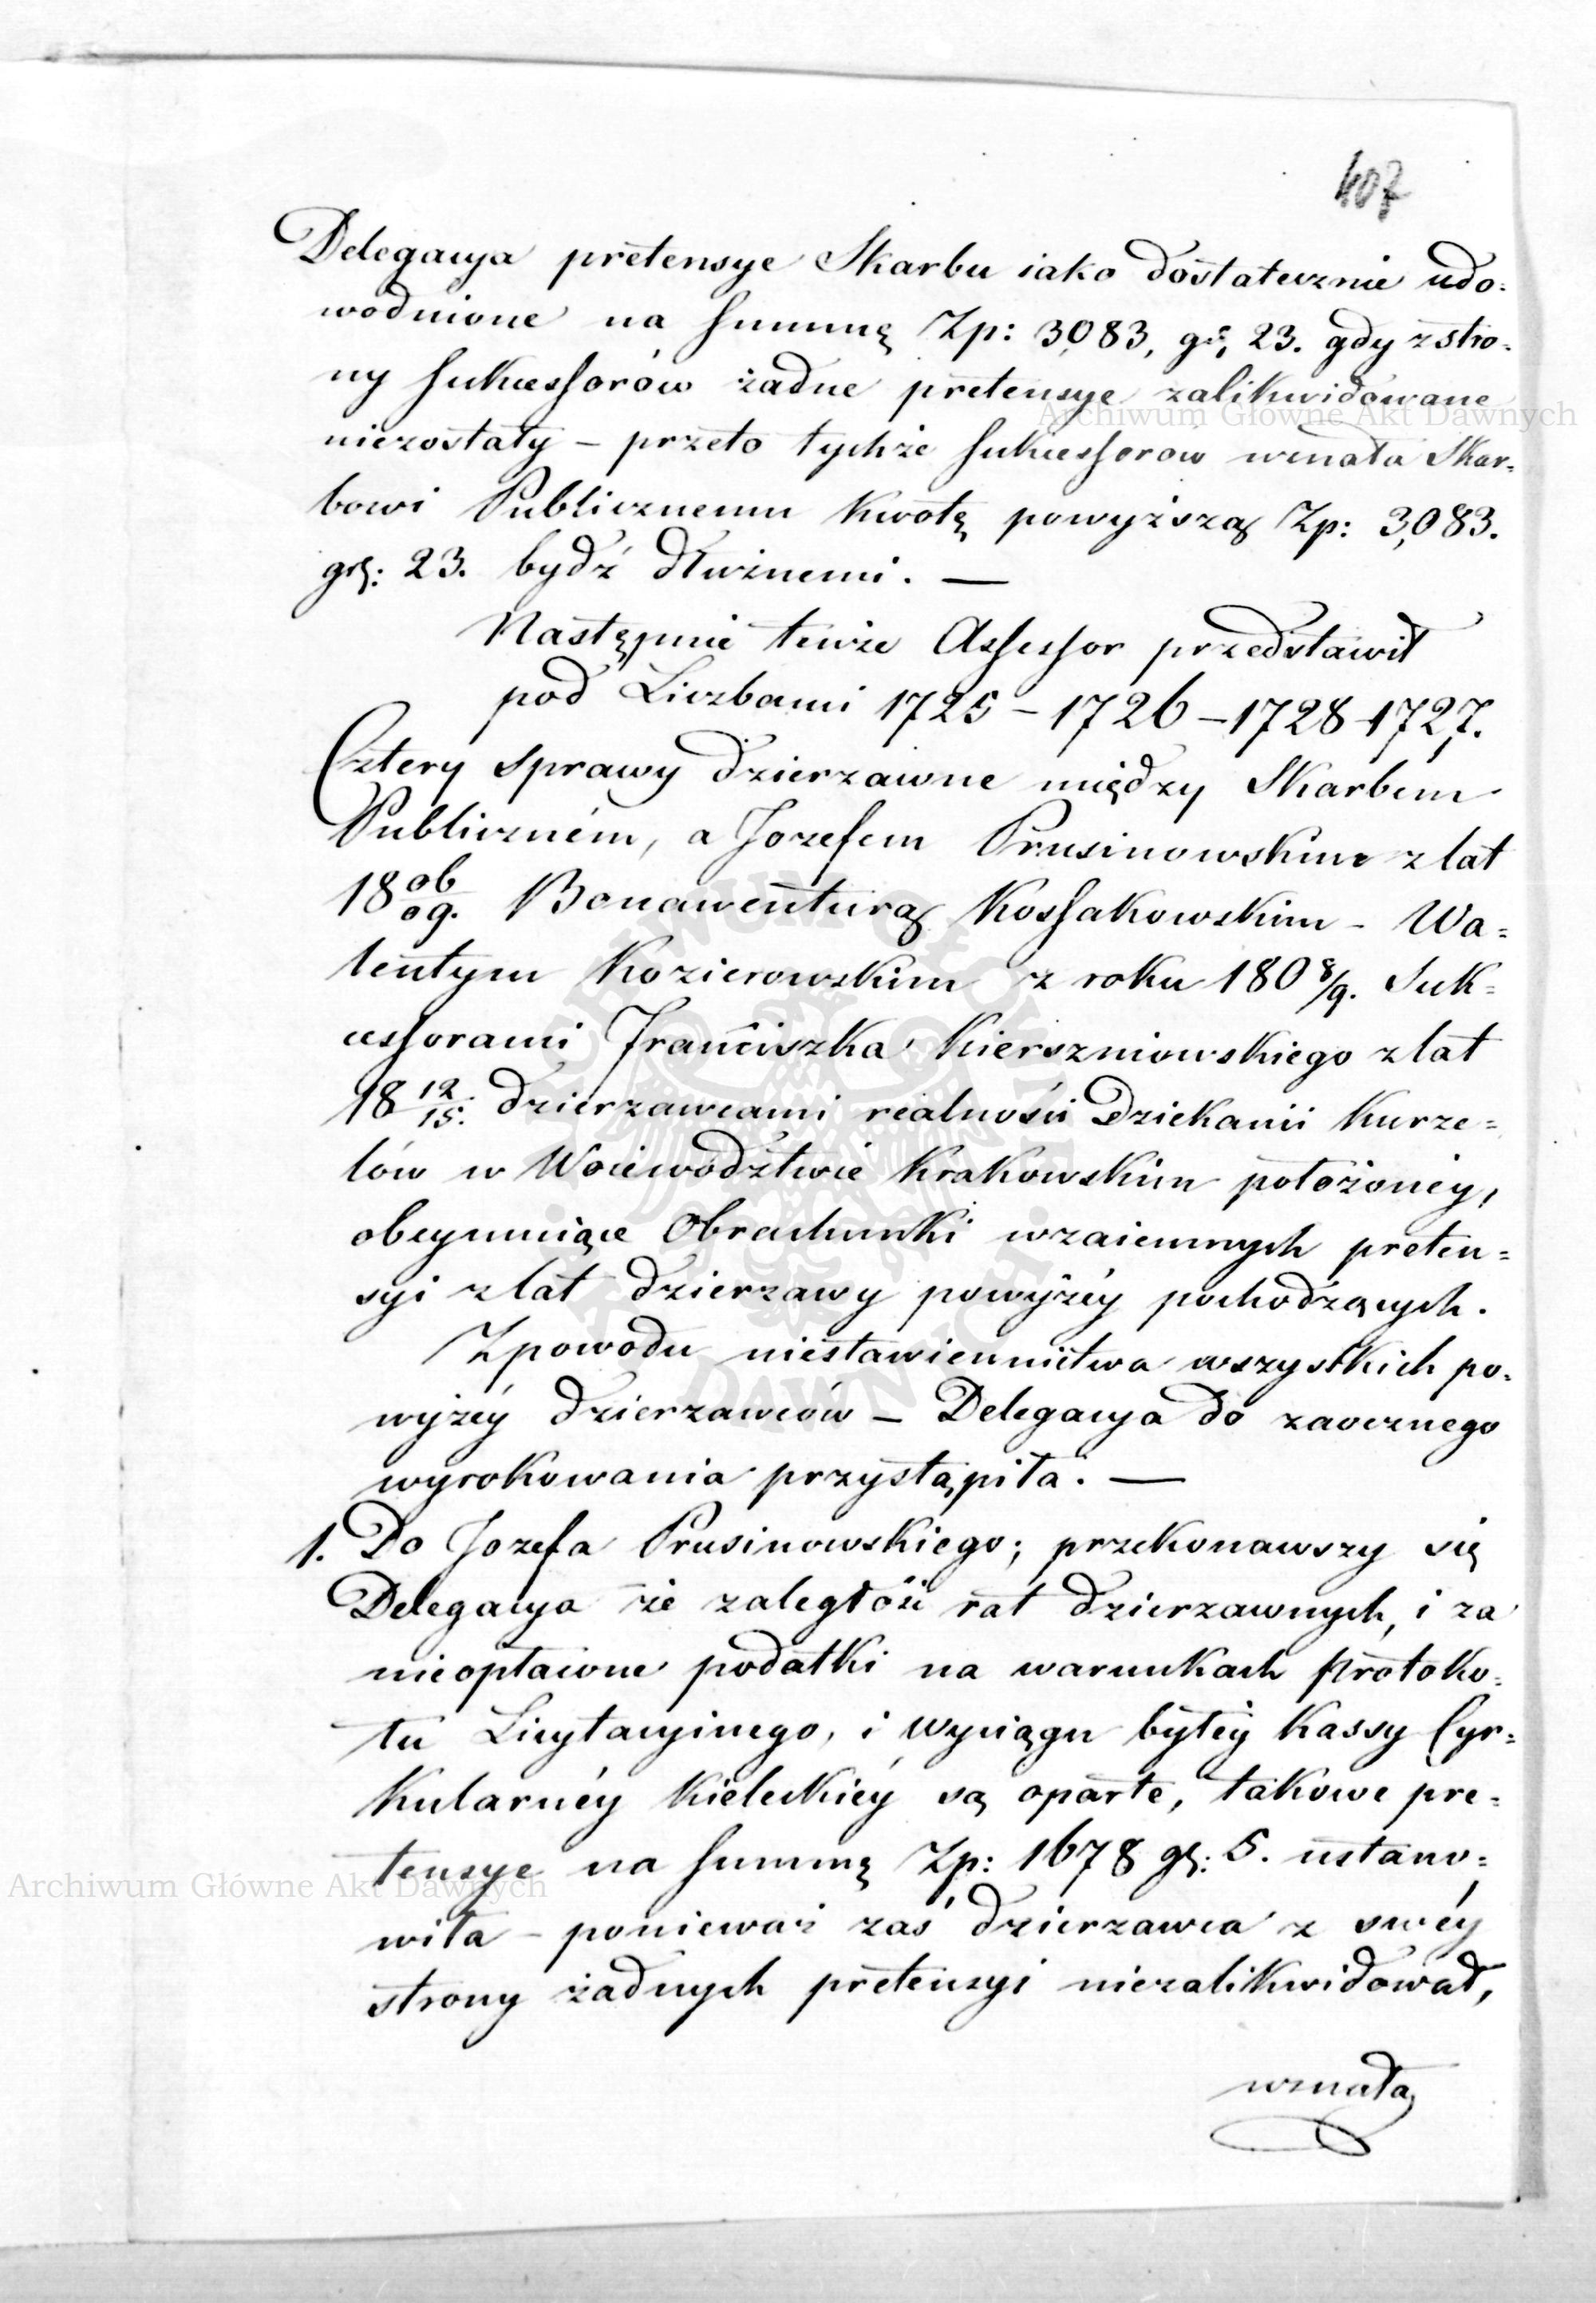 407
Delegacya pretensye Skarbu iako dostatecznie udo=
wodnione na summę Zp: 3,083, gr: 23. gdy z stro=
ny sukcessorów żadne pretensye zalikwidowane
niezostały – przeto tychże sukcessorow uznała Skar=
bowi Publicznemu kwotę powyższą Zp: 3,083.
gr: 23. bydź dłużnemi. —
Następnie tenże Assessor przedstawił
pod Liczbami 1725 – 1726 – 1728 – 1727.
Cztery sprawy dzierzawne między Skarbem
Publiczném, a Jozefem Prusinowskim z lat
18 06/09. Bonawenturą Kossakowskim – Wa=
lentym Kozierowskim z roku 180 8/9. Suk=
cessorami Franciszka Kierszniowskiego z lat
18 12/15. dzierzawcami realności Dziekanii Kurze=
lów w Woiewództwie Krakowskim położoney,
obeymuiące Obrachunki wzaiemnych preten=
syi z lat dzierzawy powyżéy pochodzących.
Z powodu niestawiennictwa wszystkich po=
wyżéy dzierzawców – Delegacya do zaocznego
wyrokowania przystąpiła. —
1. Do Jozefa Prusinowskiego; przekonawszy się
Delegacya że zaległości rat dzierzawnych, i za
nieopłacone podatki na warunkach protoko=
łu Licytacyinego, i Wyciągu byłey Kassy Cyr=
kularnéy Kieleckiéy są oparte, takowe pre=
tensye na summę Zp: 1678 gr: 5. ustano=
wiła – ponieważ zaś dzierzawca z swéy
strony żadnych pretensyi niezalikwidował,
uznała
Archiwum Główne Akt Dawnych
Archiwum Główne Akt Dawnych
ARCHIWUM GŁÓWNE AKT DAWNYCH